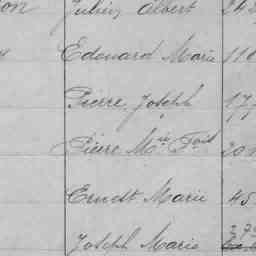 Julien Albert 242
Edouard Marie 110
Pierre Joseph 177
Pierre Mie Fois 201
Ernest Marie 45
Joseph Marie